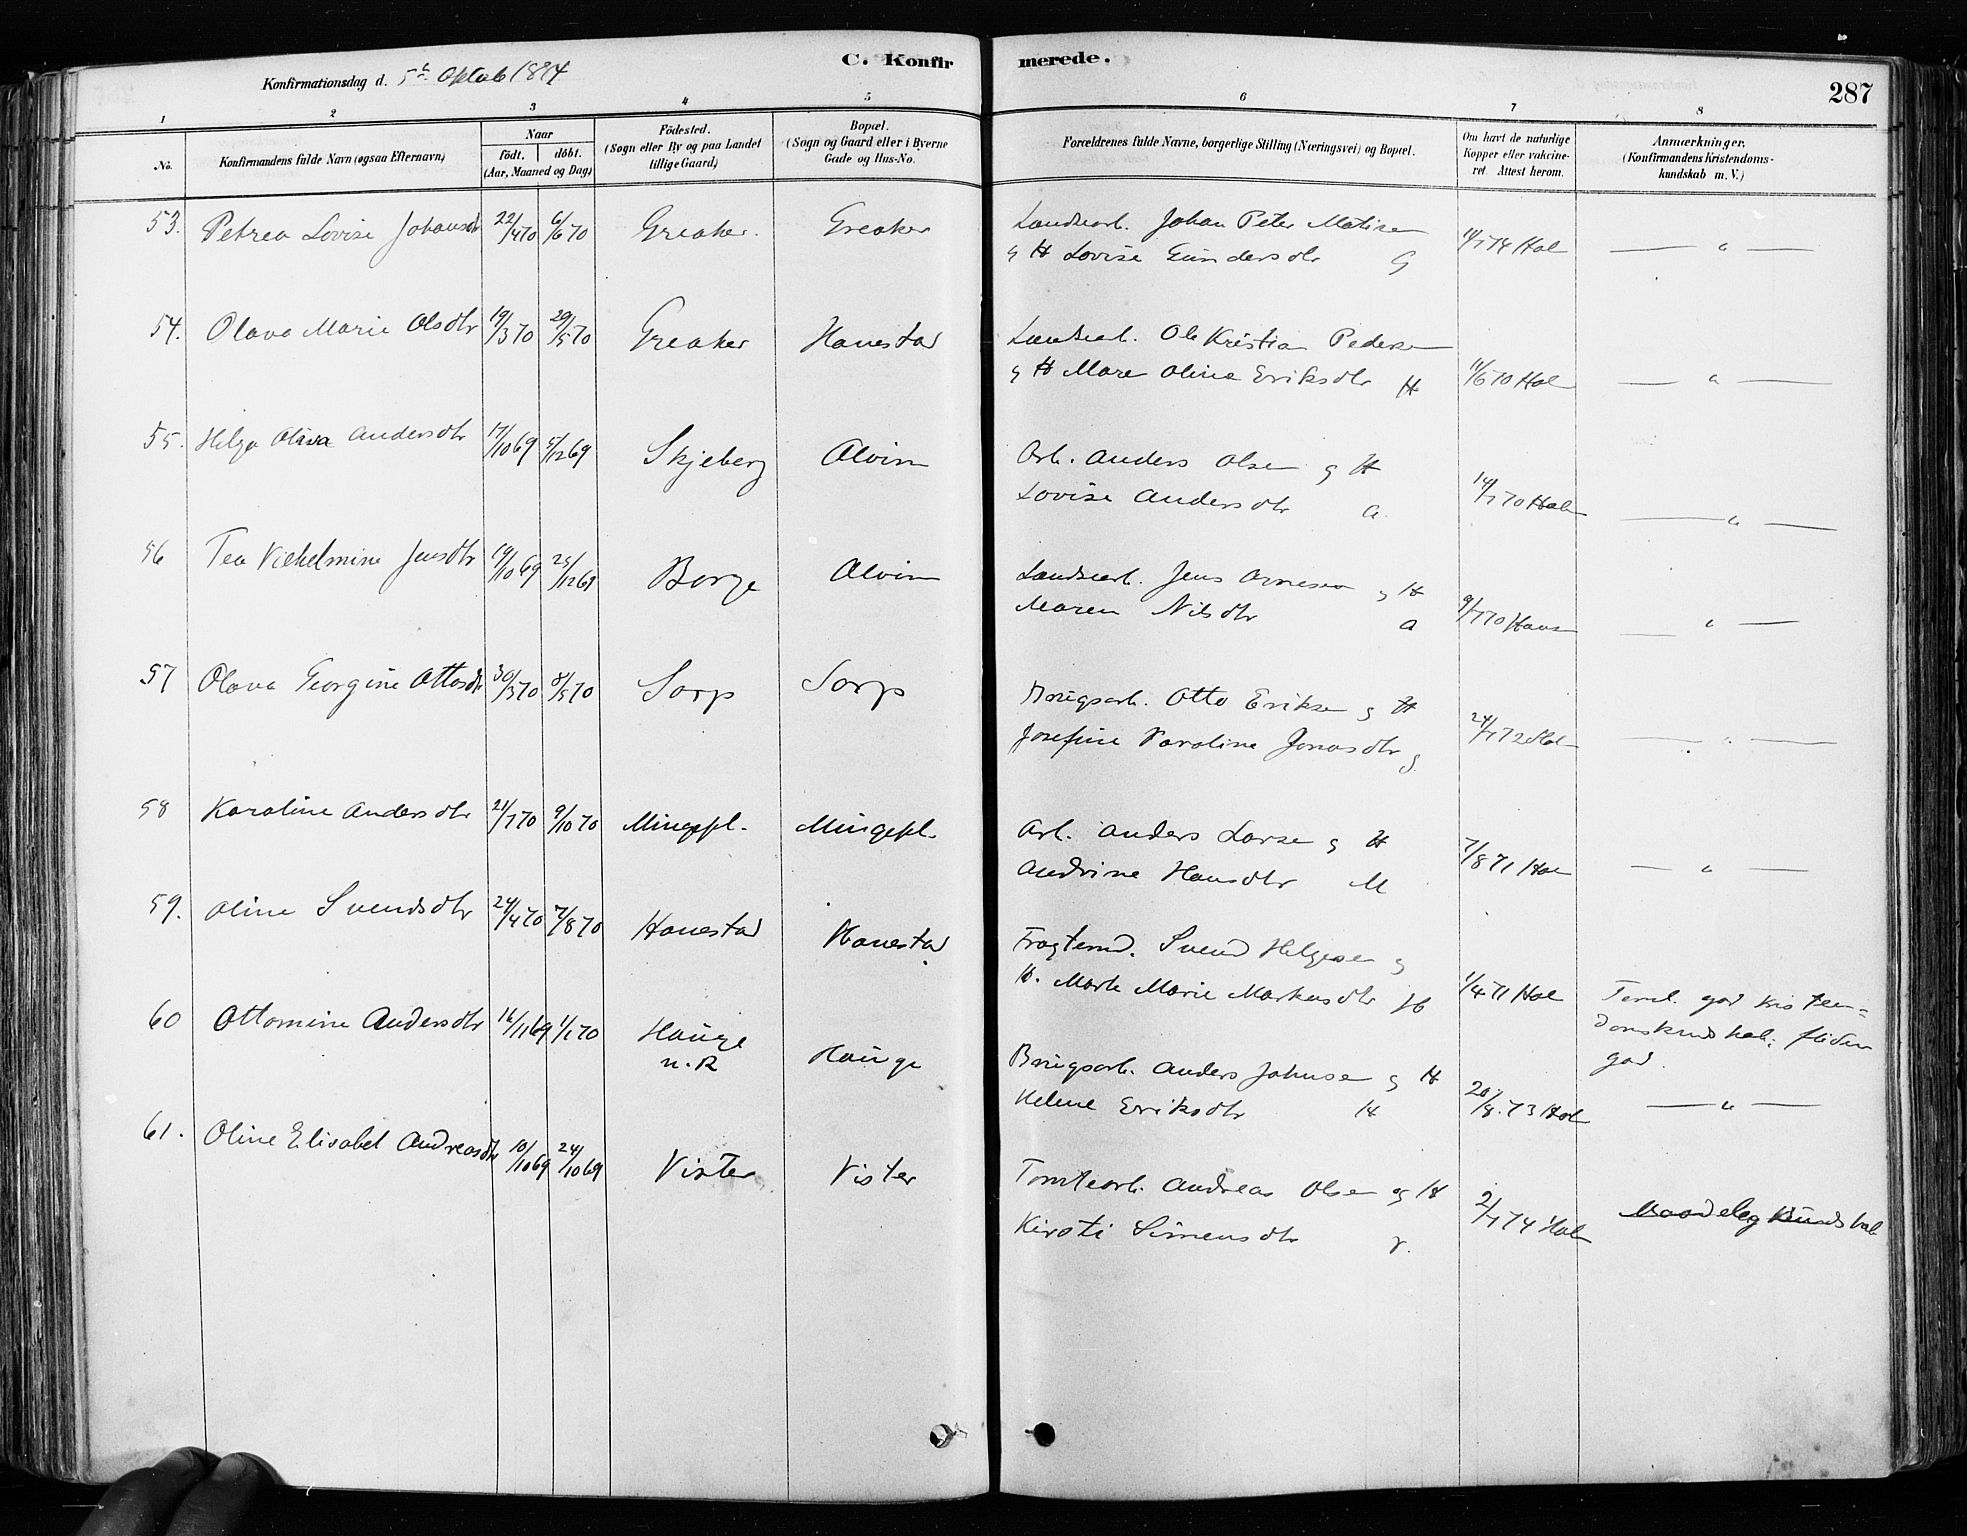 Konfirmationsdag d. 5te Oktob 1884
C. Konfirmerede.
287
1 2 3 4 5 6 7 8
No.
Konfirmandens fulde Navn (ogsaa Efternavn)
Naar
födt. döbt.
(Aar, Maaned og Dag)
Födested.
(Sogn eller By og paa Landet
tillige Gaard)
Bopæl.
(Sogn og Gaard eller i Byerne
Gade og Hus-No.
Forældrenes fulde Navne, borgerlige Stilling (Næringsvei) og Bopæl.
Om havt de naturlige
Kopper eller vakcine-
ret. Attest herom.
Anmærkninger,
(Konfirmandens Kristendoms-
kundskab m. V.)
53. Petrea Lovise Johansdtr 22/4 70 6/6 70 Greaker. Greaker
Landsearb. Johan Peter
g H Lovise Gundersdtr G
— " —
54. Olava Marie Olsdtr 19/3 70 29/5 70 Greaker Hanestad
Landsearb. Ole Kristian Pedersen
g H Mare Oline Eriksdtr H 11/6 70 Hal
— " —
55. Helga Andersdtr 17/10 69 5/12 69 Skjeberg Alvim
Arb. Anders Olsen g H
Lovise Andersdtr A 14/7 70 Hal
— " —
56 Tea Vilhelmine Jensdtr 19/10 69 25/12 69 Borge Alvim
Landsearb. Jens Arnesen g H
Maren Nilsdtr A 9/7 70
— " —
57 Olava Georgine Ottosdtr 30/3 70 8/5 70 Sorp Sorp
Brugsarb. Otto Eriksen g H
Josefine Karoline Jonasdtr S 24/1 72 Hal
— " —
58 Karoline Andersdtr 21/7 70 9/10 70 Mingepl. Mingepl.
Arb. Anders Larsen g H
Andrine Hansdtr M 7/8 71 Hal
— " —
59. Oline Svendsdtr 24/4 70 7/8 70 Hanestad Hanestad
Fragtemd. Svend Helgesen g
H. Marte Marie Markusdtr H 1/4 71 Hal
Teml. god Kristen-
domskundskab; fliden
god.
60 Ottomine Andersdtr 16/11 69 1/1 70 Hauge
n. R Hauge
Brugsarb. Anders Johnsen g H
Helene Eriksdtr H 20/8. 73 Hal
— " —
61. Oline Elisabet Andreasdtr 10/10 69 24/10 69 Vister Vister
Tomtearb. Andreas Olsen og H
Kirsti Simensdtr V. 2/7 74 Hal
Maadelig Kundskab